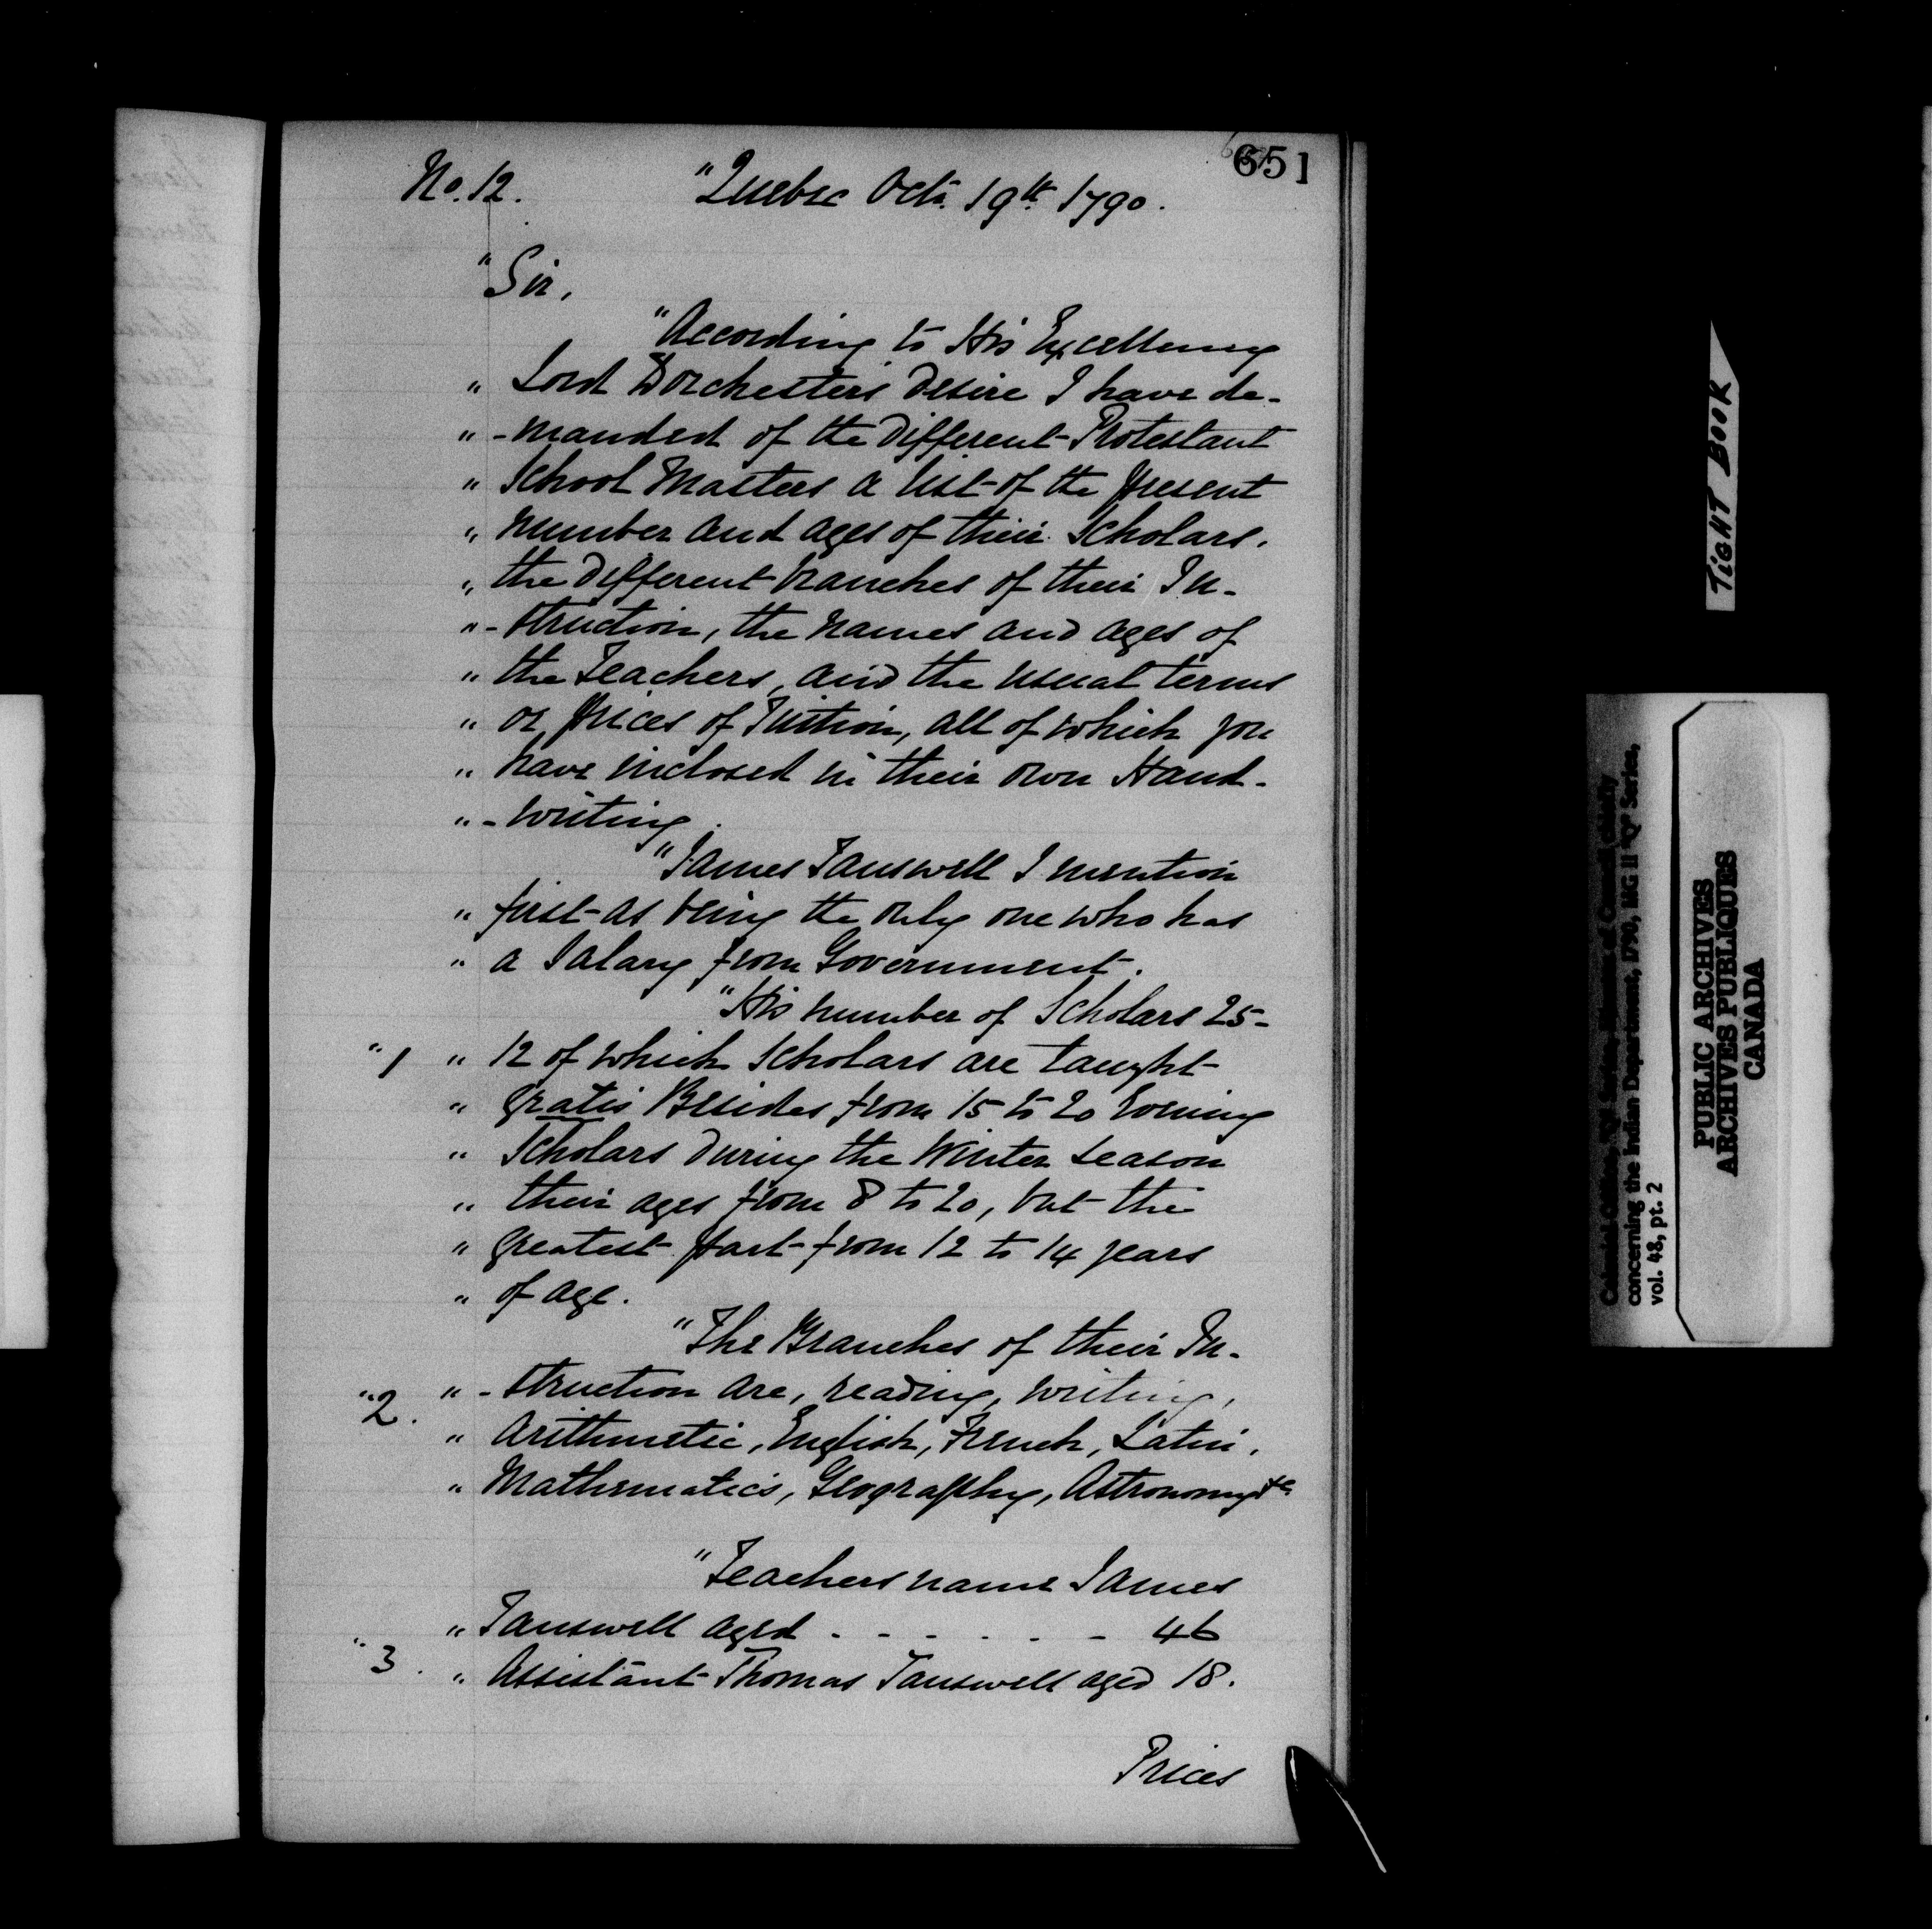 651
No. 12. "Quebec Octr. 19th 1790.
"Sir,
"According to His Excellency
" Lord Dorchester's desire I have de-
" -manded of the different Protestant
" School Masters a list of the present
" number and ages of their Scholars,
" the different branches of their In-
" -struction, the names and ages of
" the Teachers, and the usual terms
" or prices of Tuition, all of which you
" have inclosed in their own Hand-
" -writing.
"James Tanswell I mention
" first as being the only one who has
" a Salary from Government.
"His number of Scholars 25-
"1 " 12 of which Scholars are taught
" gratis Besides from 15 to 20 Evening
" Scholars during the Winter season
" their ages from 8 to 20, but the
" greatest part from 12 to 14 years
" of age.
"The Branches of their In-
"2. " -struction are, reading, writing,
" Arithmetic, English, French, Latin,
" Mathematics, Geography, Astronomy &c
"Teachers name James
" Tanswell aged - - - - - - 46
"3. " Assistant Thomas Tanswell aged 18.
Prices
TIGHT BOOK
Colonial Office, "Q" Series, Minutes of Council chiefly
concerning the Indian Department, 1790, MG 11 "Q" Series,
vol. 48, pt. 2
PUBLIC ARCHIVES
ARCHIVES PUBLIQUES
CANADA